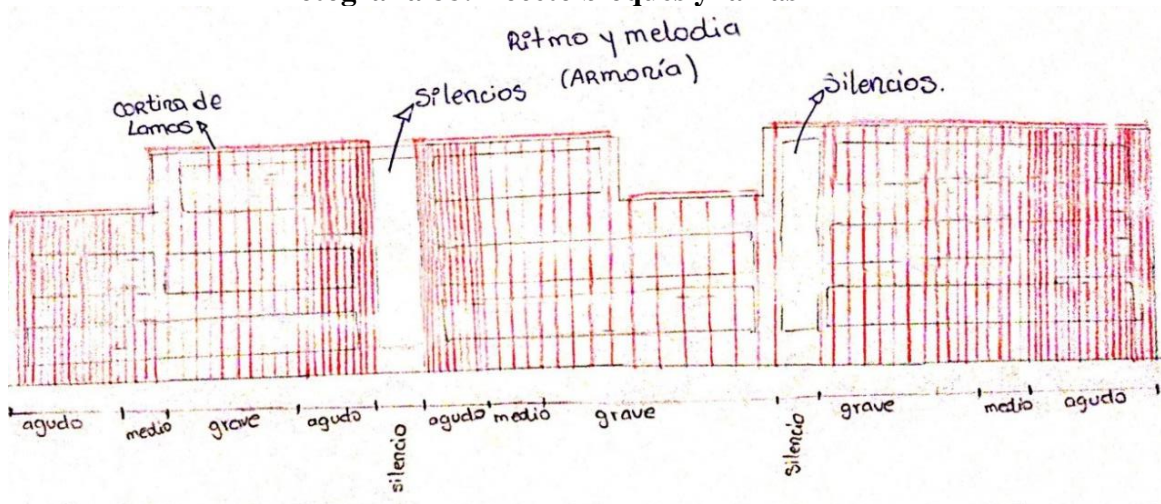 Ritmo y melodia
(ARmonía)
Silencios
Silencios.
CORtina de
Lamas
agudo
medio
grave
agudo
silencio
agudo
medio
grave
silencio
grave
medio
agudo